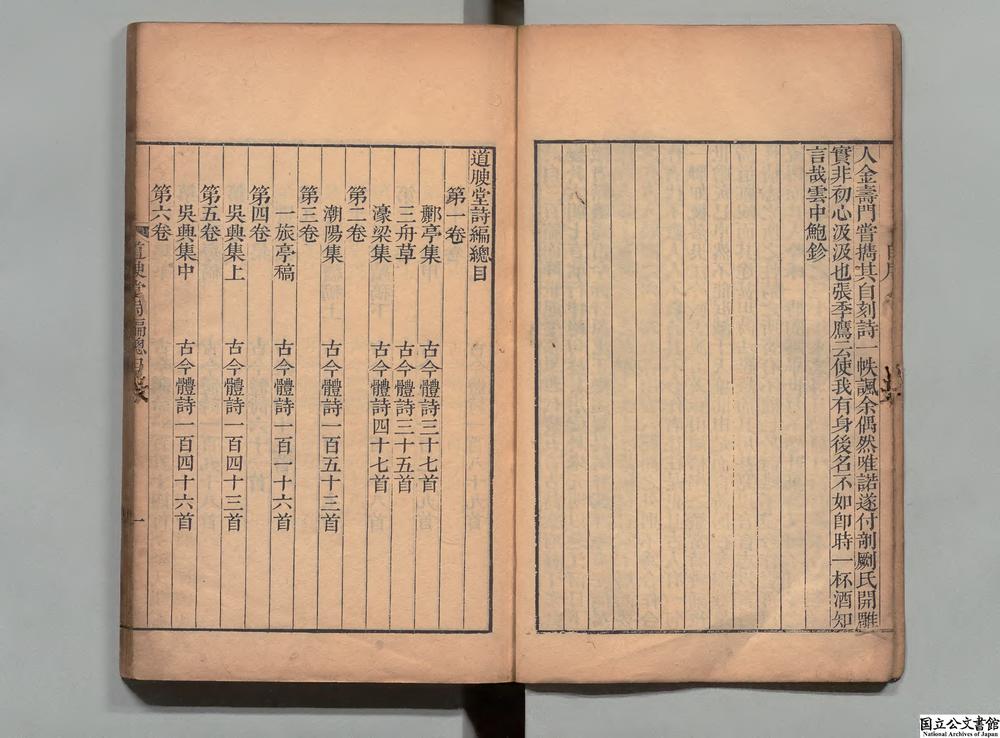 人金壽門嘗携其自刻詩一帙諷余偶然唯諾遂付剞劂氏開雕
實非初心汲汲也張季鷹云使我有身後名不如即時一杯酒知
言哉雲中鮑鉁
道腴堂詩編總目
第一卷
酈亭集 古今體詩三十七首
三舟草 古今體詩三十五首
濠梁集 古今體詩四十七首
第二卷
潮陽集 古今體詩一百五十三首
第三卷
一旅亭稿 古今體詩一百一十六首
第四卷
吳興集上 古今體詩一百四十三首
第五卷
吳興集中 古今體詩一百四十六首
第六卷
道腴堂詩編總目
一
国立公文書館
National Archives of Japan